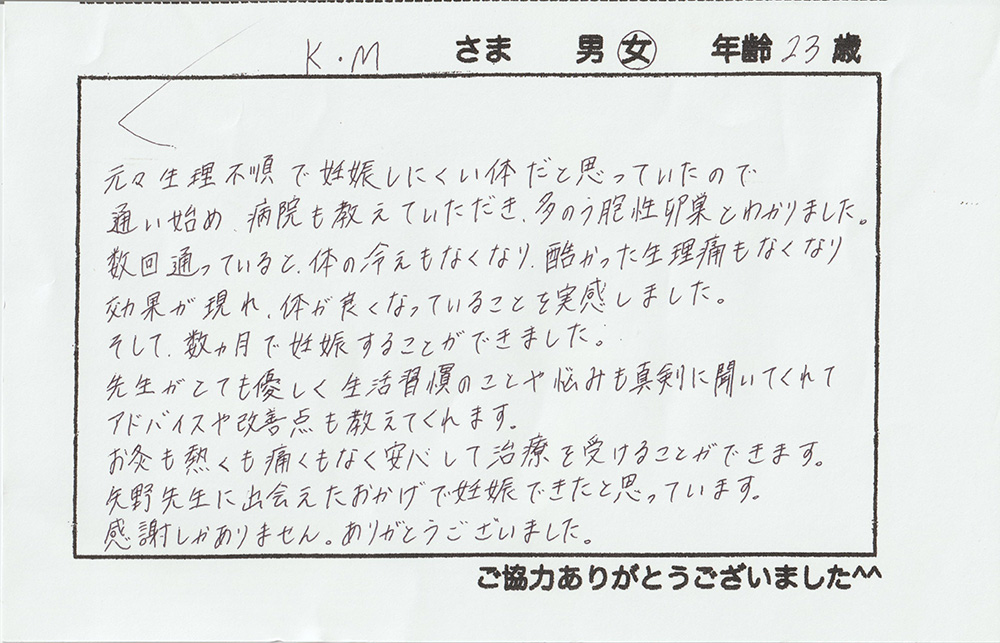 K・M さま 男 女 年齢 23 歳
元々生理不順で妊娠しにくい体だと思っていたので
通い始め、病院も教えていただき、多のう胞性卵巣とわかりました。
数回通っていると、体の冷えもなくなり、酷かった生理痛もなくなり
効果が現れ、体が良くなっていることを実感しました。
そして、数ヵ月で妊娠することができました。
先生がとても優しく生活習慣のことや悩みも真剣に聞いてくれて
アドバイスや改善点も教えてくれます。
お灸も熱くも痛くもなく安心して治療を受けることができます。
矢野先生に出会えたおかげで妊娠できたと思っています。
感謝しかありません。ありがとうございました。
ご協力ありがとうございました^^